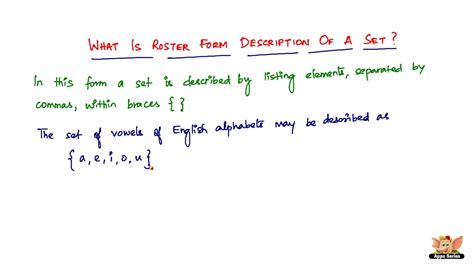 What Is Roster Form Description Of A Set?
In this form a set is described by listing elements, separated by
commas, within braces { }
The set of vowels of English alphabets may be described as
{a, e, i, o, u}
Appu Series